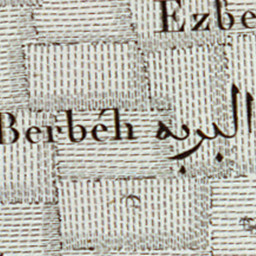 Ezbe
Berbéh البربه